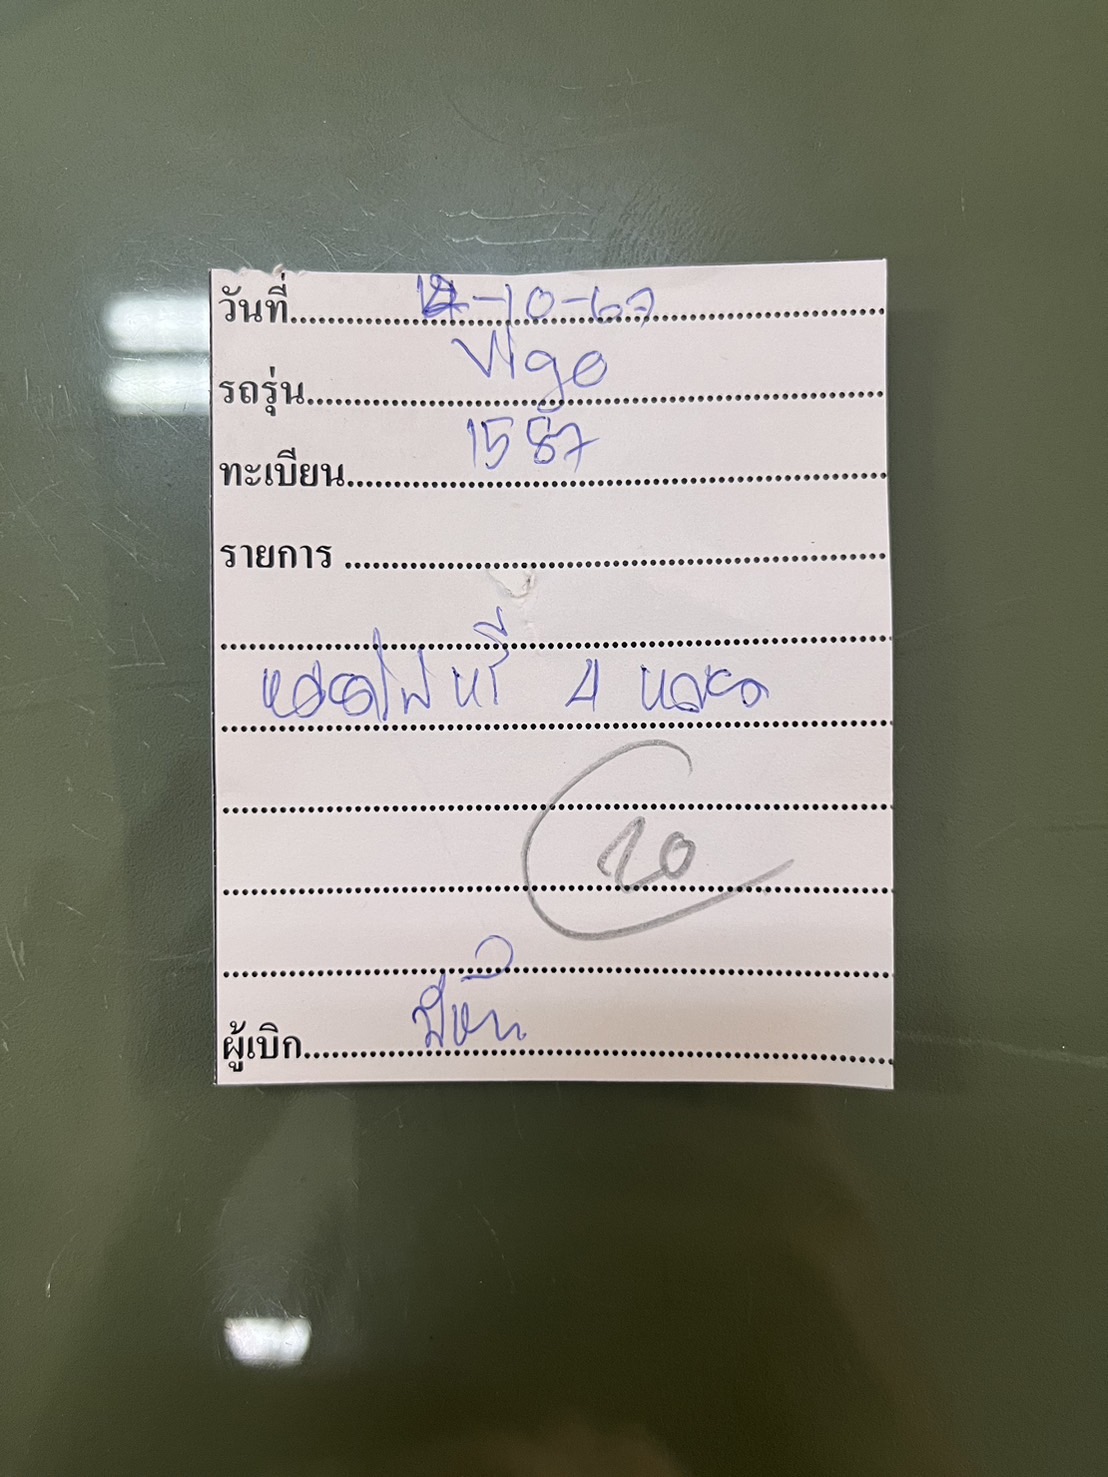 วันที่ -10-67
รถรุ่น Vigo
ทะเบียน 1587
รายการ
หลอดไฟหรี่ 4 หลอด
20
ผู้เบิก